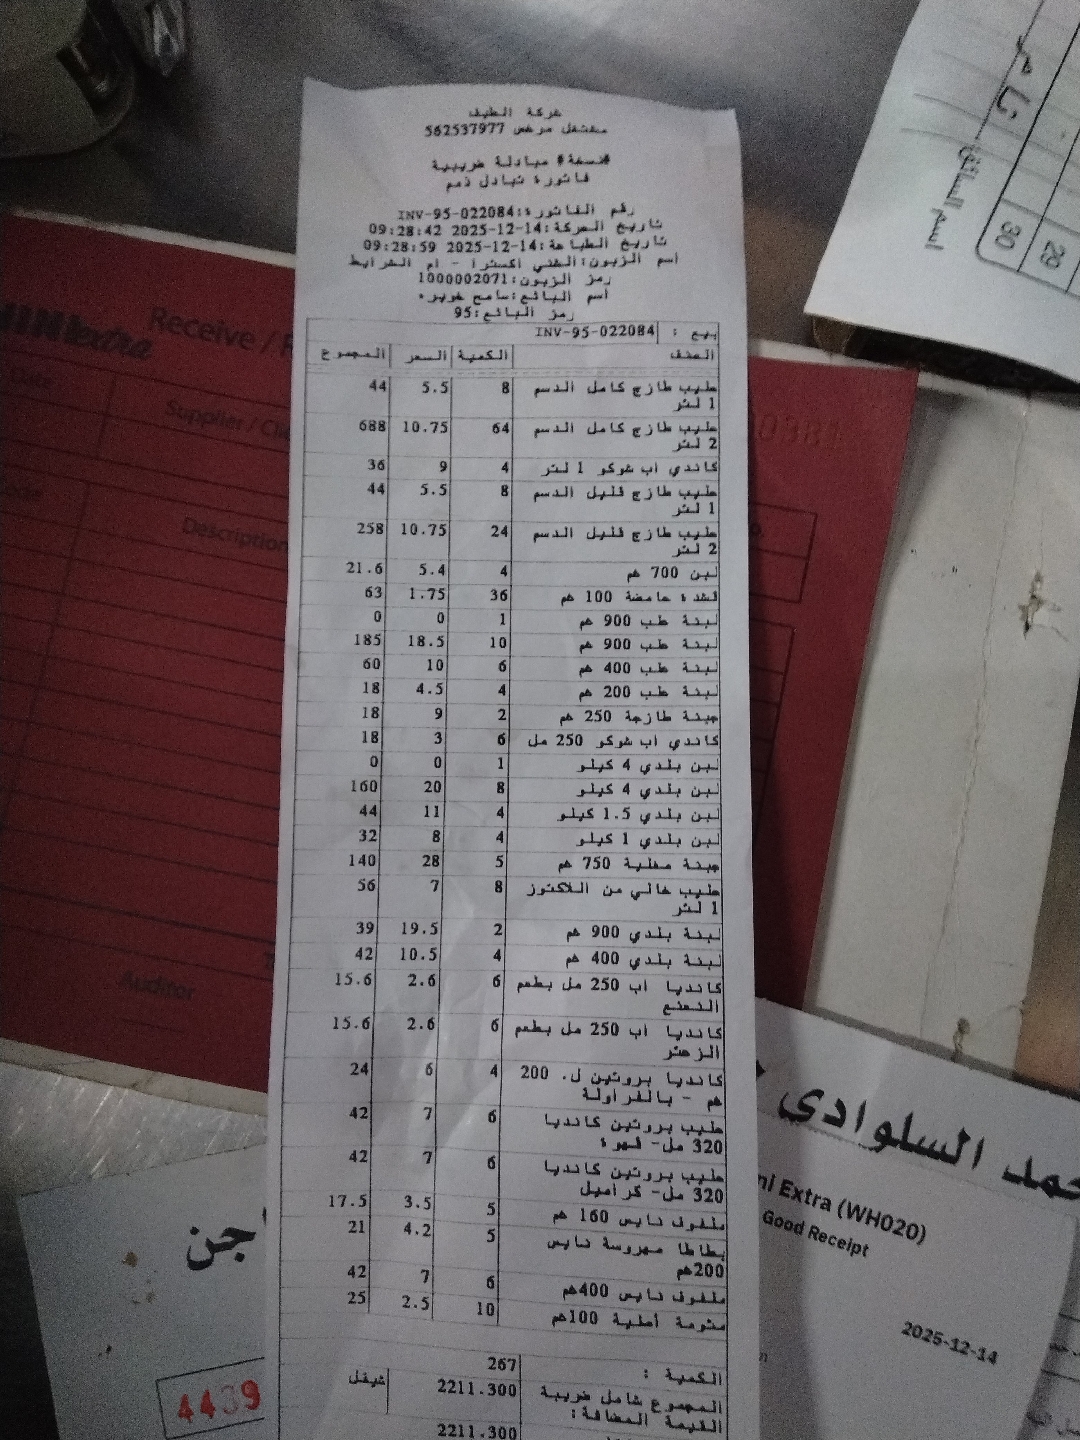 شركة الطيف
مشتغل مرخص 562537977
#نسخة# مبادلة ضريبية
فاتورة تبادل ذمم
رقم الفاتورة:INV-95-022084
تاريخ الحركة:14-12-2025 09:28:42
تاريخ الطباعة:14-12-2025 09:28:59
اسم الزبون:الشني اكسترا - ام الشرايط
رمز الزبون:1000002071
اسم البائع:سامح
رمز البائع:95
بيع : INV-95-022084
الصنف الكمية السعر المجموع
حليب طازج كامل الدسم 8 5.5 44
1 لتر
حليب طازج كامل الدسم 64 10.75 688
2 لتر
كاندي اب شوكو 1 لتر 4 9 36
حليب طازج قليل الدسم 8 5.5 44
1 لتر
حليب طازج قليل الدسم 24 10.75 258
2 لتر
لبن 700 غم 4 5.4 21.6
قشدة حامضة 100 غم 36 1.75 63
لبنة طب 900 غم 1 0 0
لبنة طب 900 غم 10 18.5 185
لبنة طب 400 غم 6 10 60
لبنة طب 200 غم 4 4.5 18
جبنة طازجة 250 غم 2 9 18
كاندي اب شوكو 250 مل 6 3 18
لبن بلدي 4 كيلو 1 0 0
لبن بلدي 4 كيلو 8 20 160
لبن بلدي 1.5 كيلو 4 11 44
لبن بلدي 1 كيلو 4 8 32
جبنة مغلية 750 غم 5 28 140
حليب خالي من اللاكتوز 8 7 56
1 لتر
لبنة بلدي 900 غم 2 19.5 39
لبنة بلدي 400 غم 4 10.5 42
كانديا اب 250 مل بطعم 6 2.6 15.6
النعنع
كانديا اب 250 مل بطعم 6 2.6 15.6
الزعتر
كانديا بروتين ل. 200 4 6 24
غم - بالفراولة
حليب بروتين كانديا 6 7 42
320 مل- قهوة
حليب بروتين كانديا 6 7 42
320 مل- كراميل
ملفوف نايس 160 غم 5 3.5 17.5
بطاطا مهروسة نايس 5 4.2 21
200غم
ملفوف نايس 400غم 6 7 42
متومة أصلية 100غم 10 2.5 25
الكمية : 267
المجموع شامل ضريبة 2211.300 شيقل
القيمة المضافة:
2211.300
MINI extra
Receive / R
Date
Supplier / Cli
Code
Description
Auditor
اسم السائق
29
30
حمد السلوادي
ni Extra (WH020)
Good Receipt
2025-12-14
اجن
4439